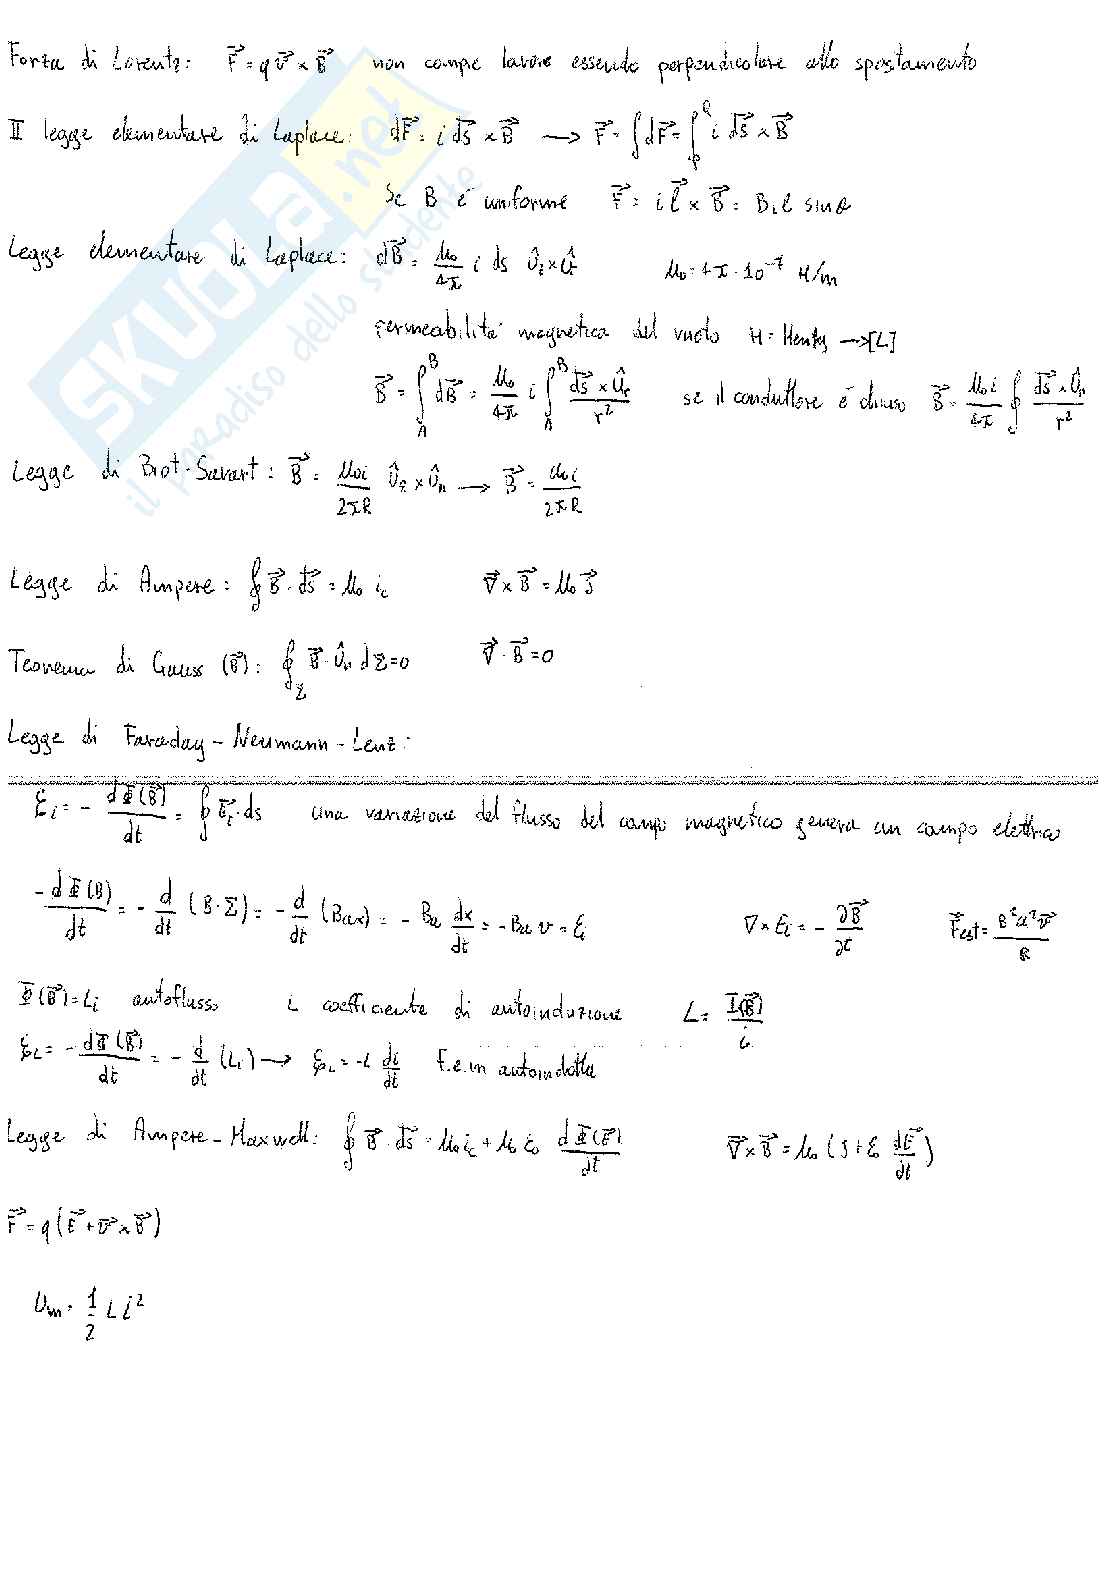 Forza di Lorentz: F⃗ = q v⃗ × B⃗ non compie lavoro essendo perpendicolare allo spostamento
II legge elementare di Laplace: dF⃗ = i ds⃗ × B⃗ → F⃗ = ∫dF⃗ = ∫_P^Q i ds⃗ × B⃗
Se B è uniforme F⃗ = i l⃗ × B⃗ = B i l sinθ
Legge elementare di Laplace: dB⃗ = μ₀/4π i ds Û_t × Û_r μ₀ = 4π · 10⁻⁷ H/m
permeabilità magnetica del vuoto H = Henry → [L]
B⃗ = ∫_A^B dB⃗ = μ₀/4π i ∫_A^B ds⃗ × Û_r / r² se il conduttore è chiuso B⃗ = μ₀i/4π ∮_C ds⃗ × Û_r / r²
Legge di Biot-Savart: B⃗ = μ₀i/2πR Û_t × Û_n → B⃗ = μ₀i/2πR
Legge di Ampere: ∮ B⃗ · ds⃗ = μ₀ i_c ∇⃗ × B⃗ = μ₀ J⃗
Teorema di Gauss (B⃗): ∮_Σ B⃗ · Û_n dΣ = 0 ∇⃗ · B⃗ = 0
Legge di Faraday - Neumann - Lenz:
ℰ_i = - dΦ(B⃗)/dt = ∮ E⃗_i · ds una variazione del flusso del campo magnetico genera un campo elettrico
- dΦ(B)/dt = - d/dt (B · Σ) = - d/dt (Bax) = - Ba dx/dt = - Ba v = ℰ_i ∇ × E_i = - ∂B⃗/∂t F⃗est = B²a²v⃗/R
Φ(B⃗) = Li autoflusso L coefficiente di autoinduzione L = Φ(B⃗)/i
ℰ_L = - dΦ(B⃗)/dt = - d/dt (Li) → ℰ_L = -L di/dt f.e.m autoindotta
Legge di Ampere-Maxwell: ∮ B⃗ · ds⃗ = μ₀ i_c + μ₀ ε₀ dΦ(E⃗)/dt ∇⃗ × B⃗ = μ₀ (J + ε₀ dE⃗/dt)
F⃗ = q(E⃗ + v⃗ × B⃗)
U_m = 1/2 L i²
SKUOLA.net
il paradiso dello studente